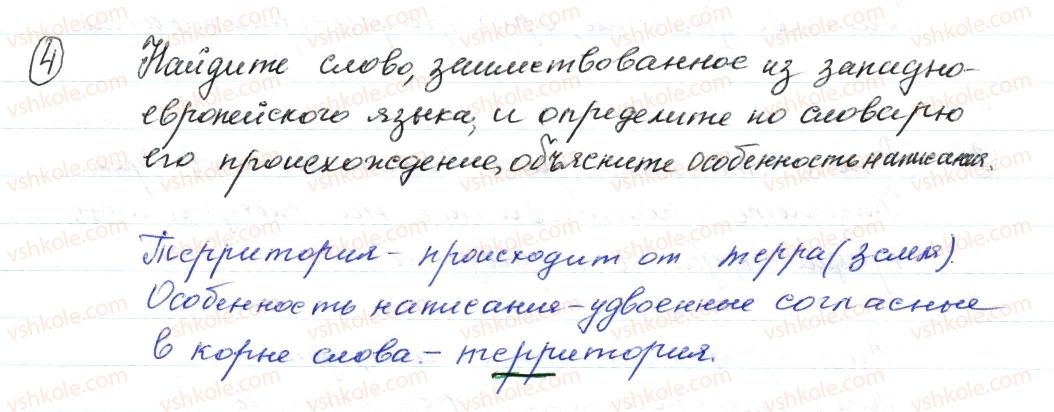 4 Найдите слово, заимствованное из западно-
европейского языка, и определите по словарю
его происхождение, объясните особенность написания.
Территория - происходит от терра (земля).
Особенность написания - удвоенные согласные
в корне слова. - территория.